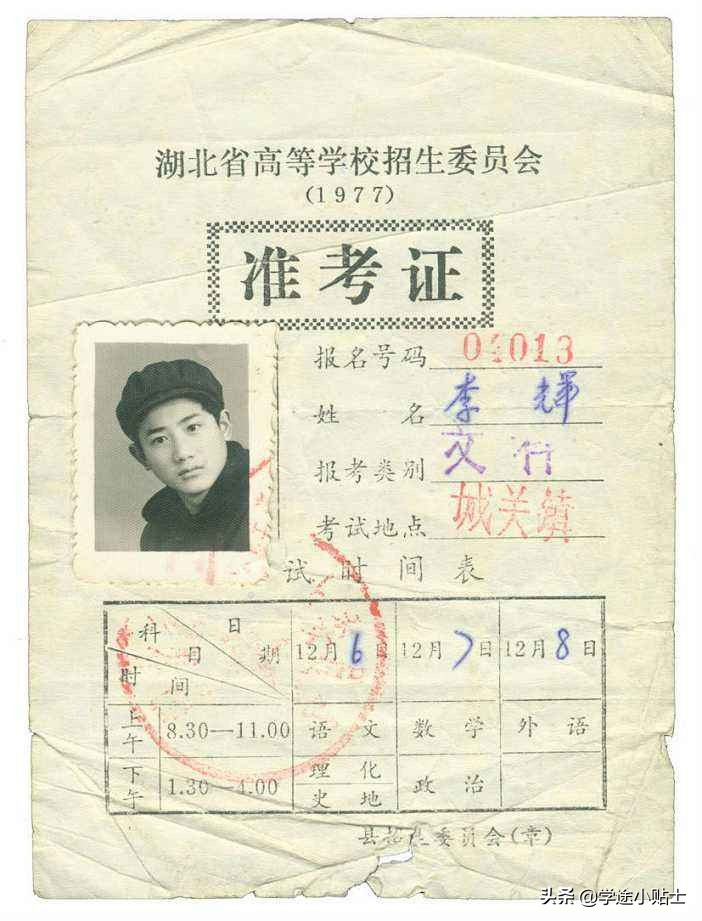 湖北省高等学校招生委员会
(1977)
准考证
报名号码 04013
姓名 李辉
报考类别 文
考试地点 城关镇
试时间表
科目 日期 时间 12月6日 12月7日 12月8日
上午 8.30—11.00 语文 数学 外语
下午 1.30—4.00 理化 史地 政治
县招生委员会(章)
头条 @学途小贴士